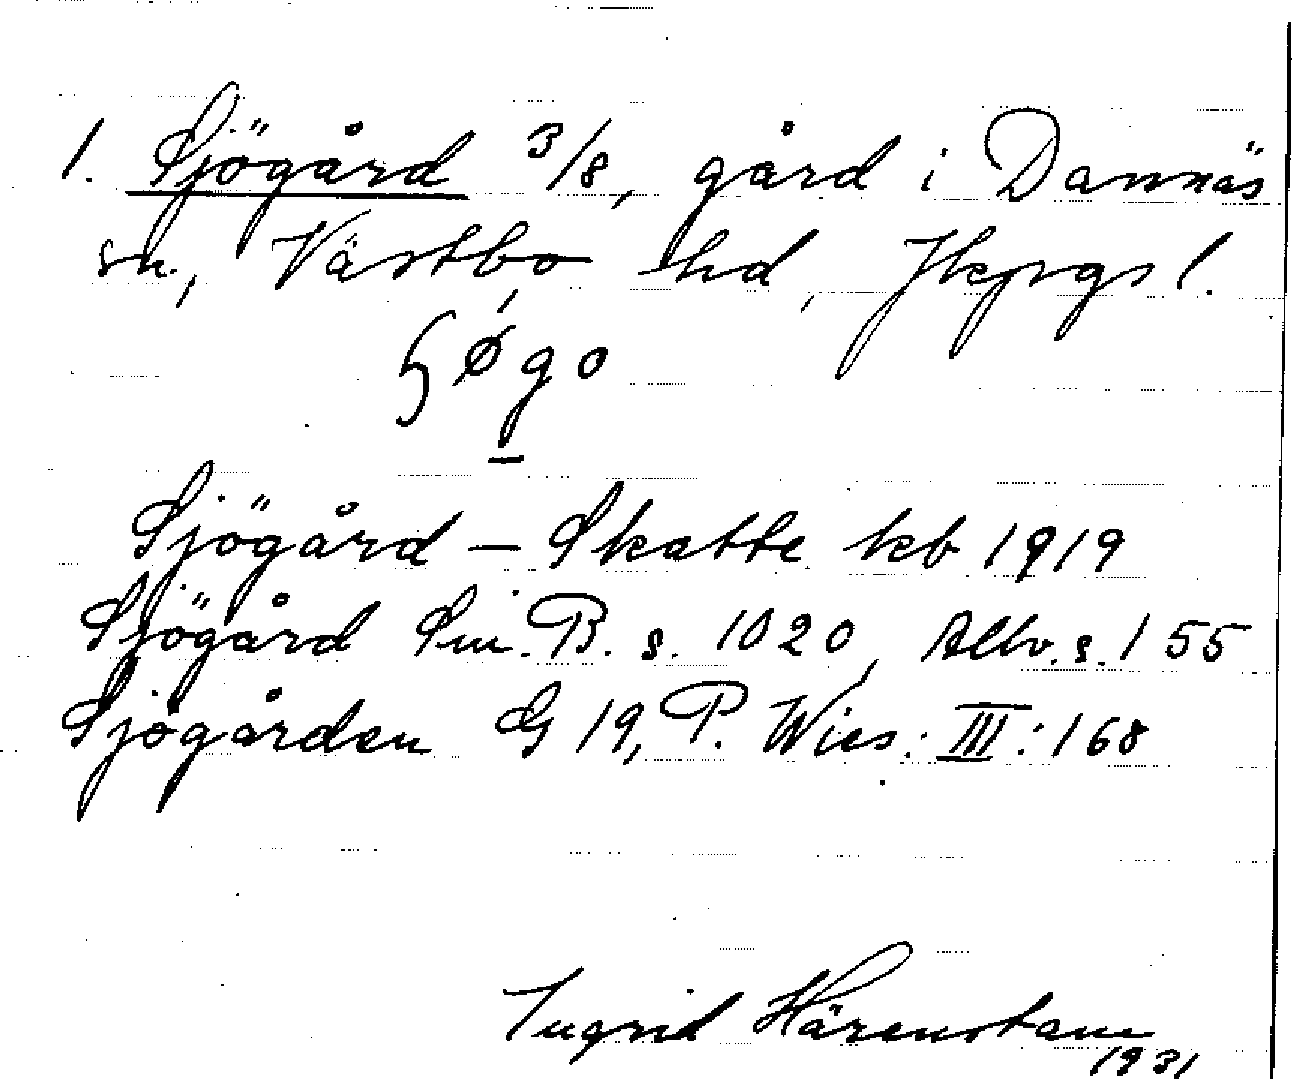 1. Sjögård 3/8, gård i Dannäs
sn., Västbo hd, Jkpgs l.
Sjögård – Skatte kb 1919
Sjögård Sm. B. s. 1020, Allv. s. 155
Sjögården G 19, P. Wies.: III: 168
Ingrid Härenstam
1931